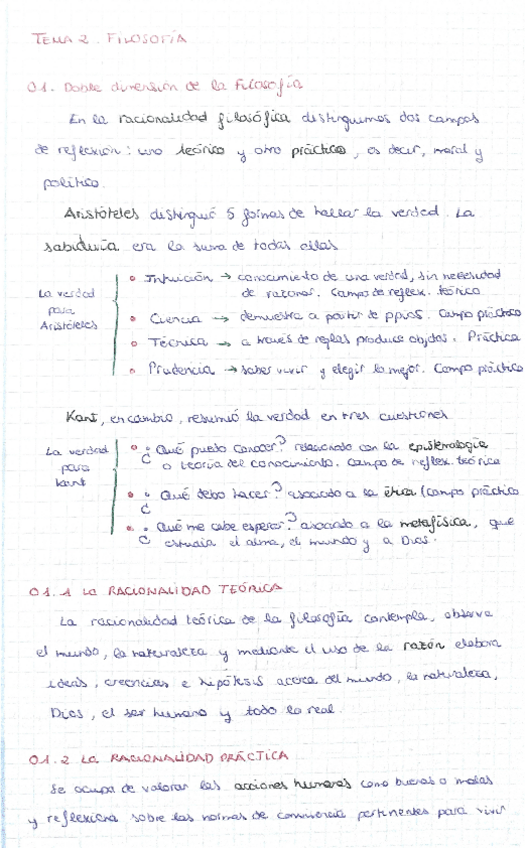 TEMA 2. FILOSOFÍA
01. Doble dimensión de la Filosofía
En la racionalidad filosófica distinguimos dos campos
de reflexión: uno teórico y otro práctico, es decir, moral y
político.
Aristóteles distingue 5 formas de hallar la verdad. La
sabiduría era la suma de todas ellas
La verdad para Aristóteles
• Intuición → conocimiento de una verdad, sin necesidad
de razonar. Campo de reflex. teórico
• Ciencia → demuestra a partir de ppios. Campo práctico
• Técnica → a través de reglas produce objetos. Práctica
• Prudencia → saber vivir y elegir lo mejor. Campo práctico
Kant, en cambio, resumió la verdad en tres cuestiones
La verdad para Kant
• ¿Qué puedo conocer? relacionado con la epistemología
o teoría del conocimiento. Campo de reflex. teórica
• ¿Qué debo hacer? asociado a la ética (campo práctico
• ¿Qué me cabe esperar? asociado a la metafísica, que
estudia el alma, el mundo y a Dios.
01.1 LA RACIONALIDAD TEÓRICA
La racionalidad teórica de la filosofía contempla, observa
el mundo, la naturaleza y mediante el uso de la razón elabora
ideas, creencias e hipótesis acerca del mundo, la naturaleza,
Dios, el ser humano y todo lo real.
01.2 LA RACIONALIDAD PRÁCTICA
Se ocupa de valorar las acciones humanas como buenas o malas
y reflexiona sobre las normas de convivencia pertinentes para vivir